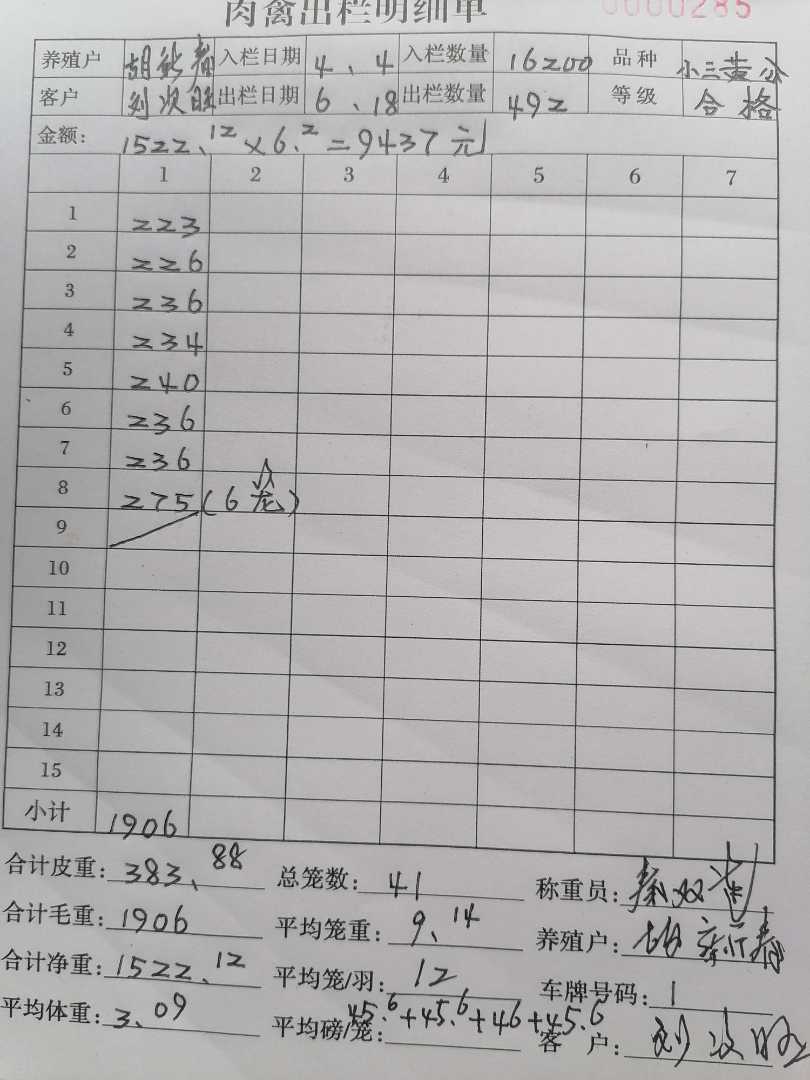 肉禽出栏明细单 0000285
养殖户 入栏日期 4、4 入栏数量 16200 品种 小三黄公
客户 出栏日期 6、18 出栏数量 492 等级 合格
金额: 1522、12×6.2=9437元
1 2 3 4 5 6 7
1 223
2 226
3 236
4 234
5 240
6 236
7 236
8 275(6笼)
9
10
11
12
13
14
15
小计 1906
合计皮重: 383、88 总笼数: 41 称重员:
合计毛重: 1906 平均笼重: 9、14 养殖户:
合计净重: 1522、12 平均笼/羽: 12 车牌号码: 1
平均体重: 3、09 平均磅/笼: 45.6+45.6+46+45.6 客户: